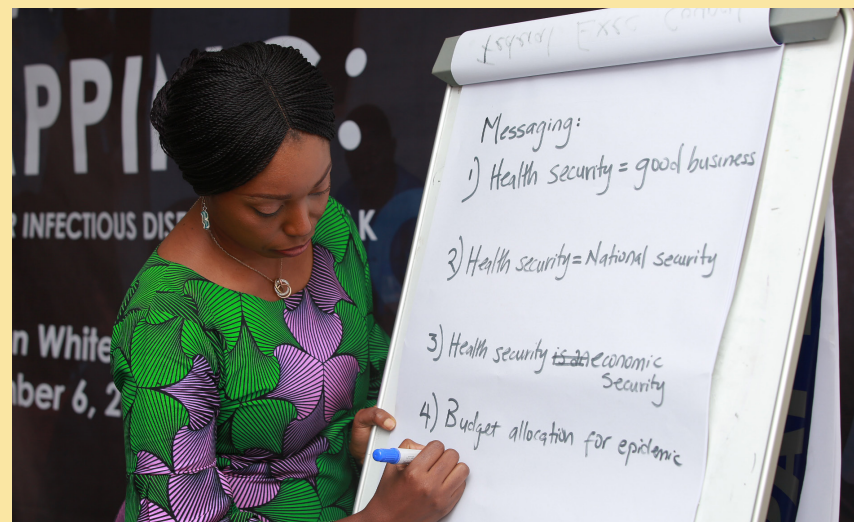 PPING:
R INFECTIOUS DIS
K
n White
ber 6, 2
Messaging:
1) Health security = good business
2) Health security = National security
3) Health security is an economic
Security
4) Budget allocation for epidemic